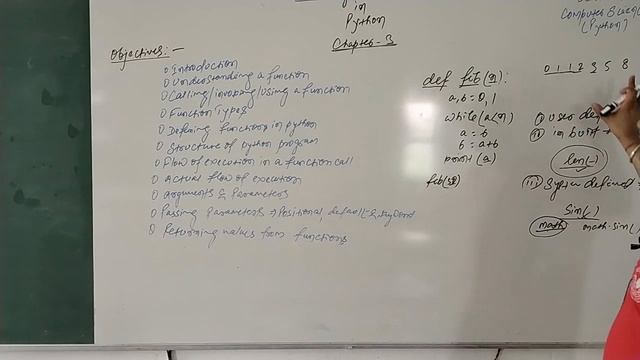 in
Python
Chapter-3
Computer Scien
(Python)
Objectives:-
Introduction
Understanding a function
Calling/invoking/using a function
Function Types
Defining functions in python
Structure of python program
Flow of execution in a function call
Actual flow of execution
Arguments & Parameters
Passing Parameters → Positional default & keyword
Returning values from functions
def fib(n):
a,b = 0, 1
while(a<n)
a = b
b = a+b
print (a)
fib(
0 1 1 2 3 5 8
(i) user def
(ii) in built
len(-)
(iii) System defined
Sin()
math math.sin(